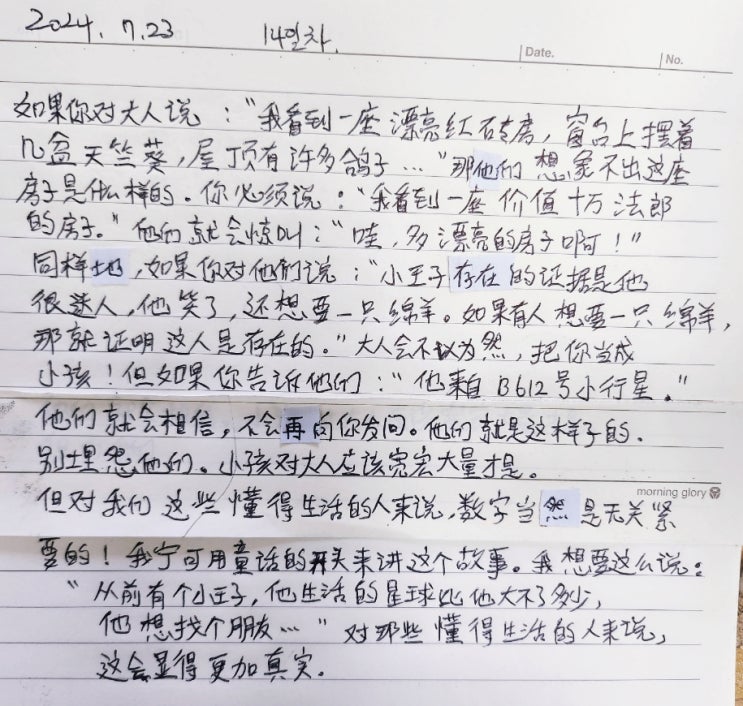 2024. 7.23 14일차.
Date. No.
如果你对大人说："我看到一座漂亮红砖房，窗台上摆着
几盆天竺葵，屋顶有许多鸽子…"那他们想象不出这座
房子是什么样的。你必须说："我看到一座价值十万法郎
的房子。"他们就会惊叫："哇，多漂亮的房子啊！"
同样地，如果你对他们说："小王子存在的证据是他
很迷人，他笑了，还想要一只绵羊。如果有人想要一只绵羊，
那就证明这人是存在的。"大人会不以为然，把你当成
小孩！但如果你告诉他们："他来自B612号小行星。"
他们就会相信，不会再向你发问。他们就是这样子的.
别埋怨他们。小孩对大人应该宽宏大量才是。
morning glory
但对我们这些懂得生活的人来说，数字当然是无关紧
要的！我宁可用童话的开关来讲这个故事。我想要这么说：
"从前有个小王子，他生活的星球比他大不了多少，
他想找个朋友…"对那些懂得生活的人来说，
这会显得更加真实.